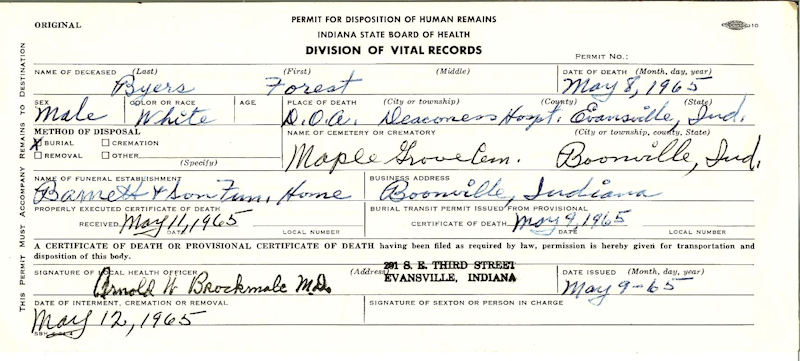 ORIGINAL
PERMIT FOR DISPOSITION OF HUMAN REMAINS
INDIANA STATE BOARD OF HEALTH
DIVISION OF VITAL RECORDS
PERMIT NO.:
NAME OF DECEASED (Last) (First) (Middle) DATE OF DEATH (Month, day, year)
Byers Forest May 8, 1965
SEX COLOR OR RACE AGE PLACE OF DEATH (City or township) (County) (State)
Male White D.O.A. Deaconess Hospt. Evansville, Ind.
METHOD OF DISPOSAL NAME OF CEMETERY OR CREMATORY (City or township, county, State)
X BURIAL CREMATION
REMOVAL OTHER
(Specify)
Maple Grove Cem. Boonville, Ind.
NAME OF FUNERAL ESTABLISHMENT BUSINESS ADDRESS
Barnett & Son Fun. Home Boonville, Indiana
PROPERLY EXECUTED CERTIFICATE OF DEATH BURIAL TRANSIT PERMIT ISSUED FROM PROVISIONAL
RECEIVED May 11, 1965 CERTIFICATE OF DEATH May 9, 1965
DATE LOCAL NUMBER DATE LOCAL NUMBER
A CERTIFICATE OF DEATH OR PROVISIONAL CERTIFICATE OF DEATH having been filed as required by law, permission is hereby given for transportation and
disposition of this body.
SIGNATURE OF LOCAL HEALTH OFFICER (Address) DATE ISSUED (Month, day, year)
Arnold W Brockmole M.D. 201 S. E. THIRD STREET
EVANSVILLE, INDIANA May 9-65
DATE OF INTERMENT, CREMATION OR REMOVAL SIGNATURE OF SEXTON OR PERSON IN CHARGE
May 12, 1965
THIS PERMIT MUST ACCOMPANY REMAINS TO DESTINATION